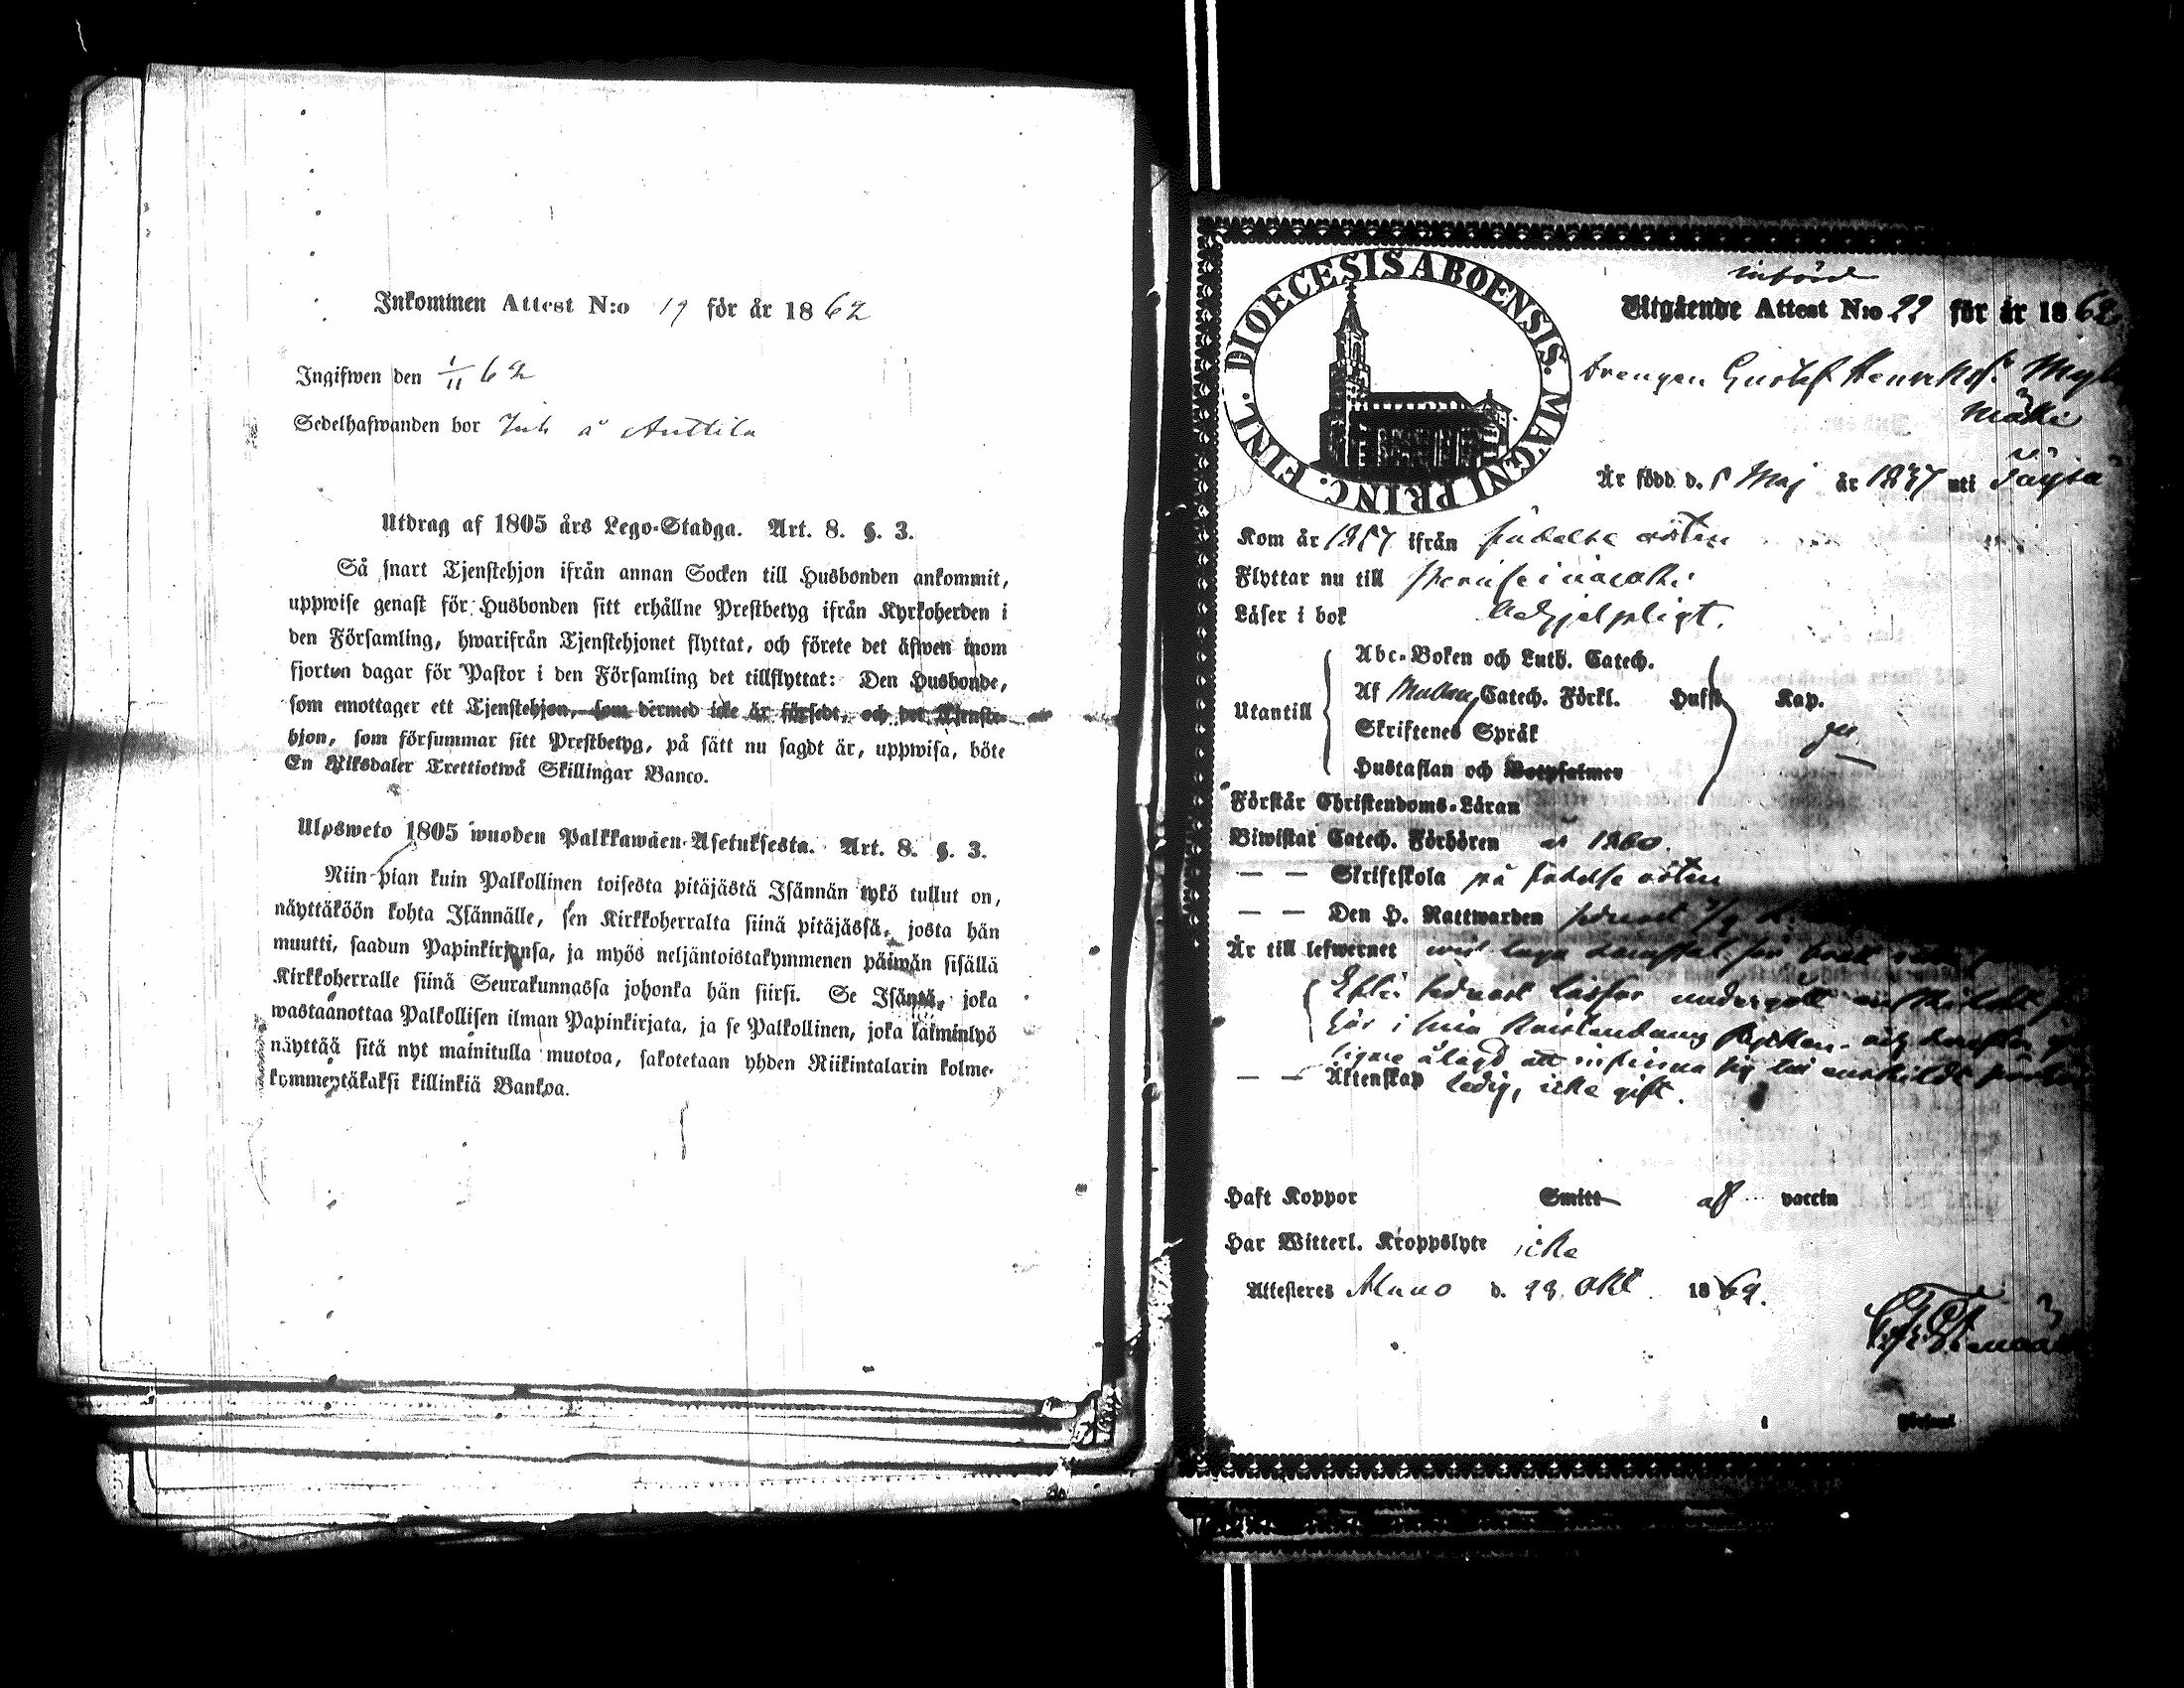 Inkommen Attest N:o 19 för år 1862
Ingifwen den 1/11 62
Sedelhafwanden bor Inh å Anttila
Utdrag af 1805 års Lego-Stadga. Art. 8. §. 3.
Så snart Tjenstehjon ifrån annan Socken till Husbonden ankommit,
uppwise genast för Husbonden sitt erhållne Prestbetyg ifrån Kyrkoherden i
den Församling, hwarifrån Tjenstehjonet flyttat, och förete det äfwen inom
fjorton dagar för Pastor i den Församling det tillflyttat: Den Husbonde,
som emottager ett Tjenstehjon, som dermed icke är försedt, och det Tjenste-
hjon, som försummar sitt Prestbetyg, på sätt nu sagdt är, uppwisa, böte
En Riksdaler Trettiotwå Skillingar Banco.
Ulosweto 1805 wuoden Palkkawäen-Asetuksesta. Art. 8. §. 3.
Niin pian kuin Palkollinen toisesta pitäjästä Isännän tykö tullut on,
näyttäköön kohta Isännälle, sen Kirkkoherralta siinä pitäjässä, josta hän
muutti, saadun Papinkirjansa, ja myös neljäntoistakymmenen päiwän sisällä
Kirkkoherralle siinä Seurakunnassa johonka hän siirsi. Se Isäntä, joka
wastaanottaa Palkollisen ilman Papinkirjata, ja se Palkollinen, joka laiminlyö
näyttää sitä nyt mainitulla muotoa, sakotetaan yhden Riikintalarin kolme-
kymmentäkaksi killinkiä Bankoa.
DIOECESIS ABOENSIS. MAGNI PRINC. FINL.
införd
Utgående Attest N:o 22 för år 1862
Drengen Gustaf Henrikss.
mäki
Är född d. 8 Maj år 1837 uti Töysä
Kom år 1857 ifrån födelse orten
Flyttar nu till
Läser i bok behjelpligt.
Utantill
Abc-Boken och Luth. Catech.
Af Catech. Förkl. Hufst Kap.
Skriftenes Språk
Hustaflan och Botpsalmer
Förstår Christendoms-Läran
Biwistat Catech. Förhören år 1860.
— — Skriftskola på födelse orten
— — Den H. Nattwarden sednast
Är till lefwernet
Efter sednast
här i sin Kristendoms
ålagd att infinna sig till enskildt
— — Äktenskap ledig, icke gift.
Haft Koppor Smitt af vaccin
Har Witterl. Kroppslyte icke
Attesteres Alavo d. 28 Okt. 1862.